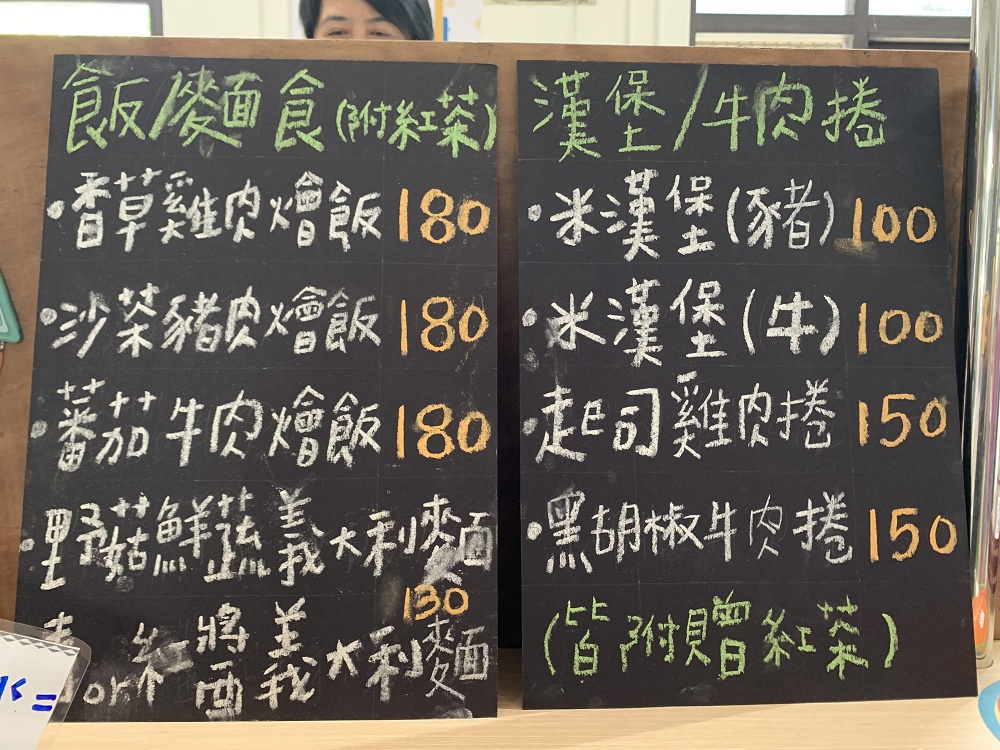 飯/麥面食(附紅茶)
·香草雞肉燴飯 180
·沙茶豬肉燴飯 180
·蕃茄牛肉燴飯 180
·野菇鮮蔬義大利麵
130
or 醬義大利麵
漢堡/牛肉捲
·米漢堡(豬) 100
·米漢堡(牛) 100
·起司雞肉捲 150
·黑胡椒牛肉捲 150
(皆附贈紅茶)